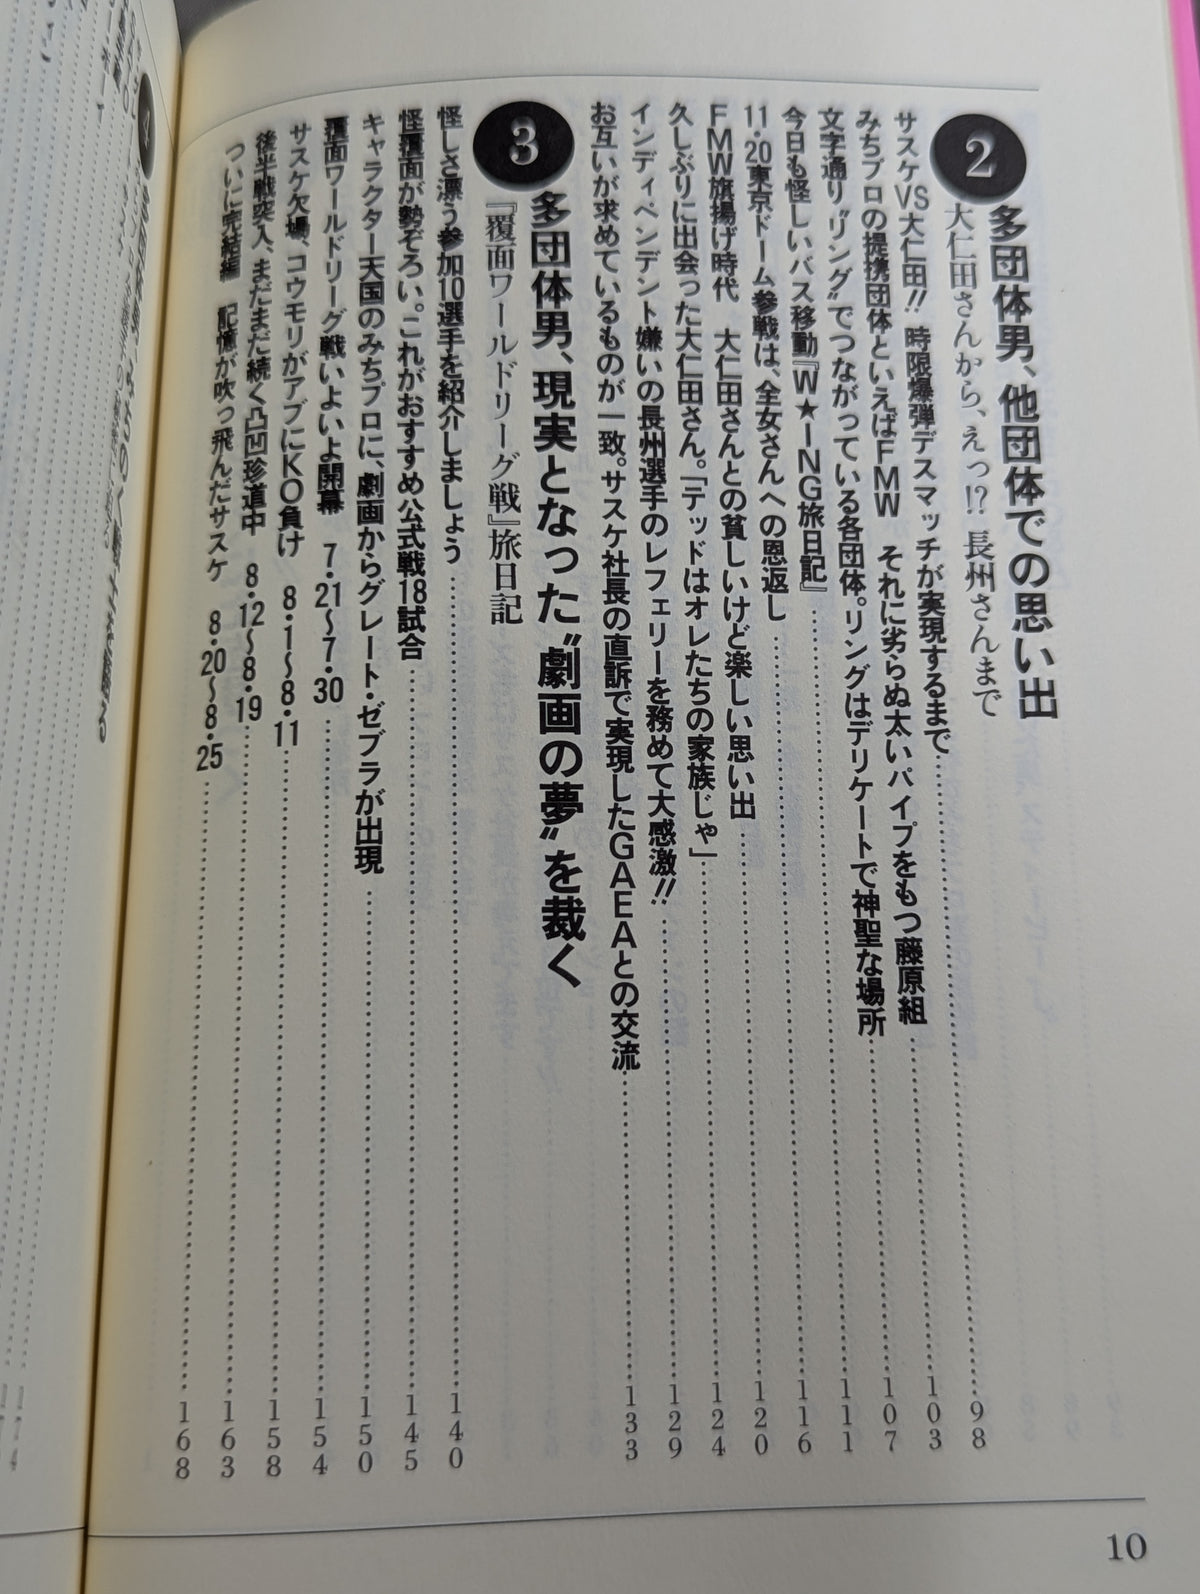 ❷ 多団体男、他団体での思い出
大仁田さんから、えっ!? 長州さんまで
サスケVS大仁田!! 時限爆弾デスマッチが実現するまで……98
みちプロの提携団体といえばFMW それに劣らぬ太いパイプをもつ藤原組……103
文字通り〝リング〟でつながっている各団体。リングはデリケートで神聖な場所……107
今日も怪しいバス移動『W★ING旅日記』……111
11・20東京ドーム参戦は、全女さんへの恩返し……116
FMW旗揚げ時代 大仁田さんとの貧しいけど楽しい思い出……120
久しぶりに出会った大仁田さん。「テッドはオレたちの家族じゃ」……124
インディペンデント嫌いの長州選手のレフェリーを務めて大感激!!……129
お互いが求めているものが一致。サスケ社長の直訴で実現したGAEAとの交流……133
❸ 多団体男、現実となった〝劇画の夢〟を裁く
『覆面ワールドリーグ戦』旅日記
怪しさ漂う参加10選手を紹介しましょう……140
怪覆面が勢ぞろい。これがおすすめ公式戦18試合……145
キャラクター天国のみちプロに、劇画からグレート・ゼブラが出現……150
覆面ワールドリーグ戦いよいよ開幕 7・21〜7・30……154
サスケ欠場、コウモリがアブにKO負け 8・1〜8・11……158
後半戦突入、まだまだ続く凸凹珍道中 8・12〜8・19……163
ついに完結編 記憶が吹っ飛んだサスケ 8・20〜8・25……168
10